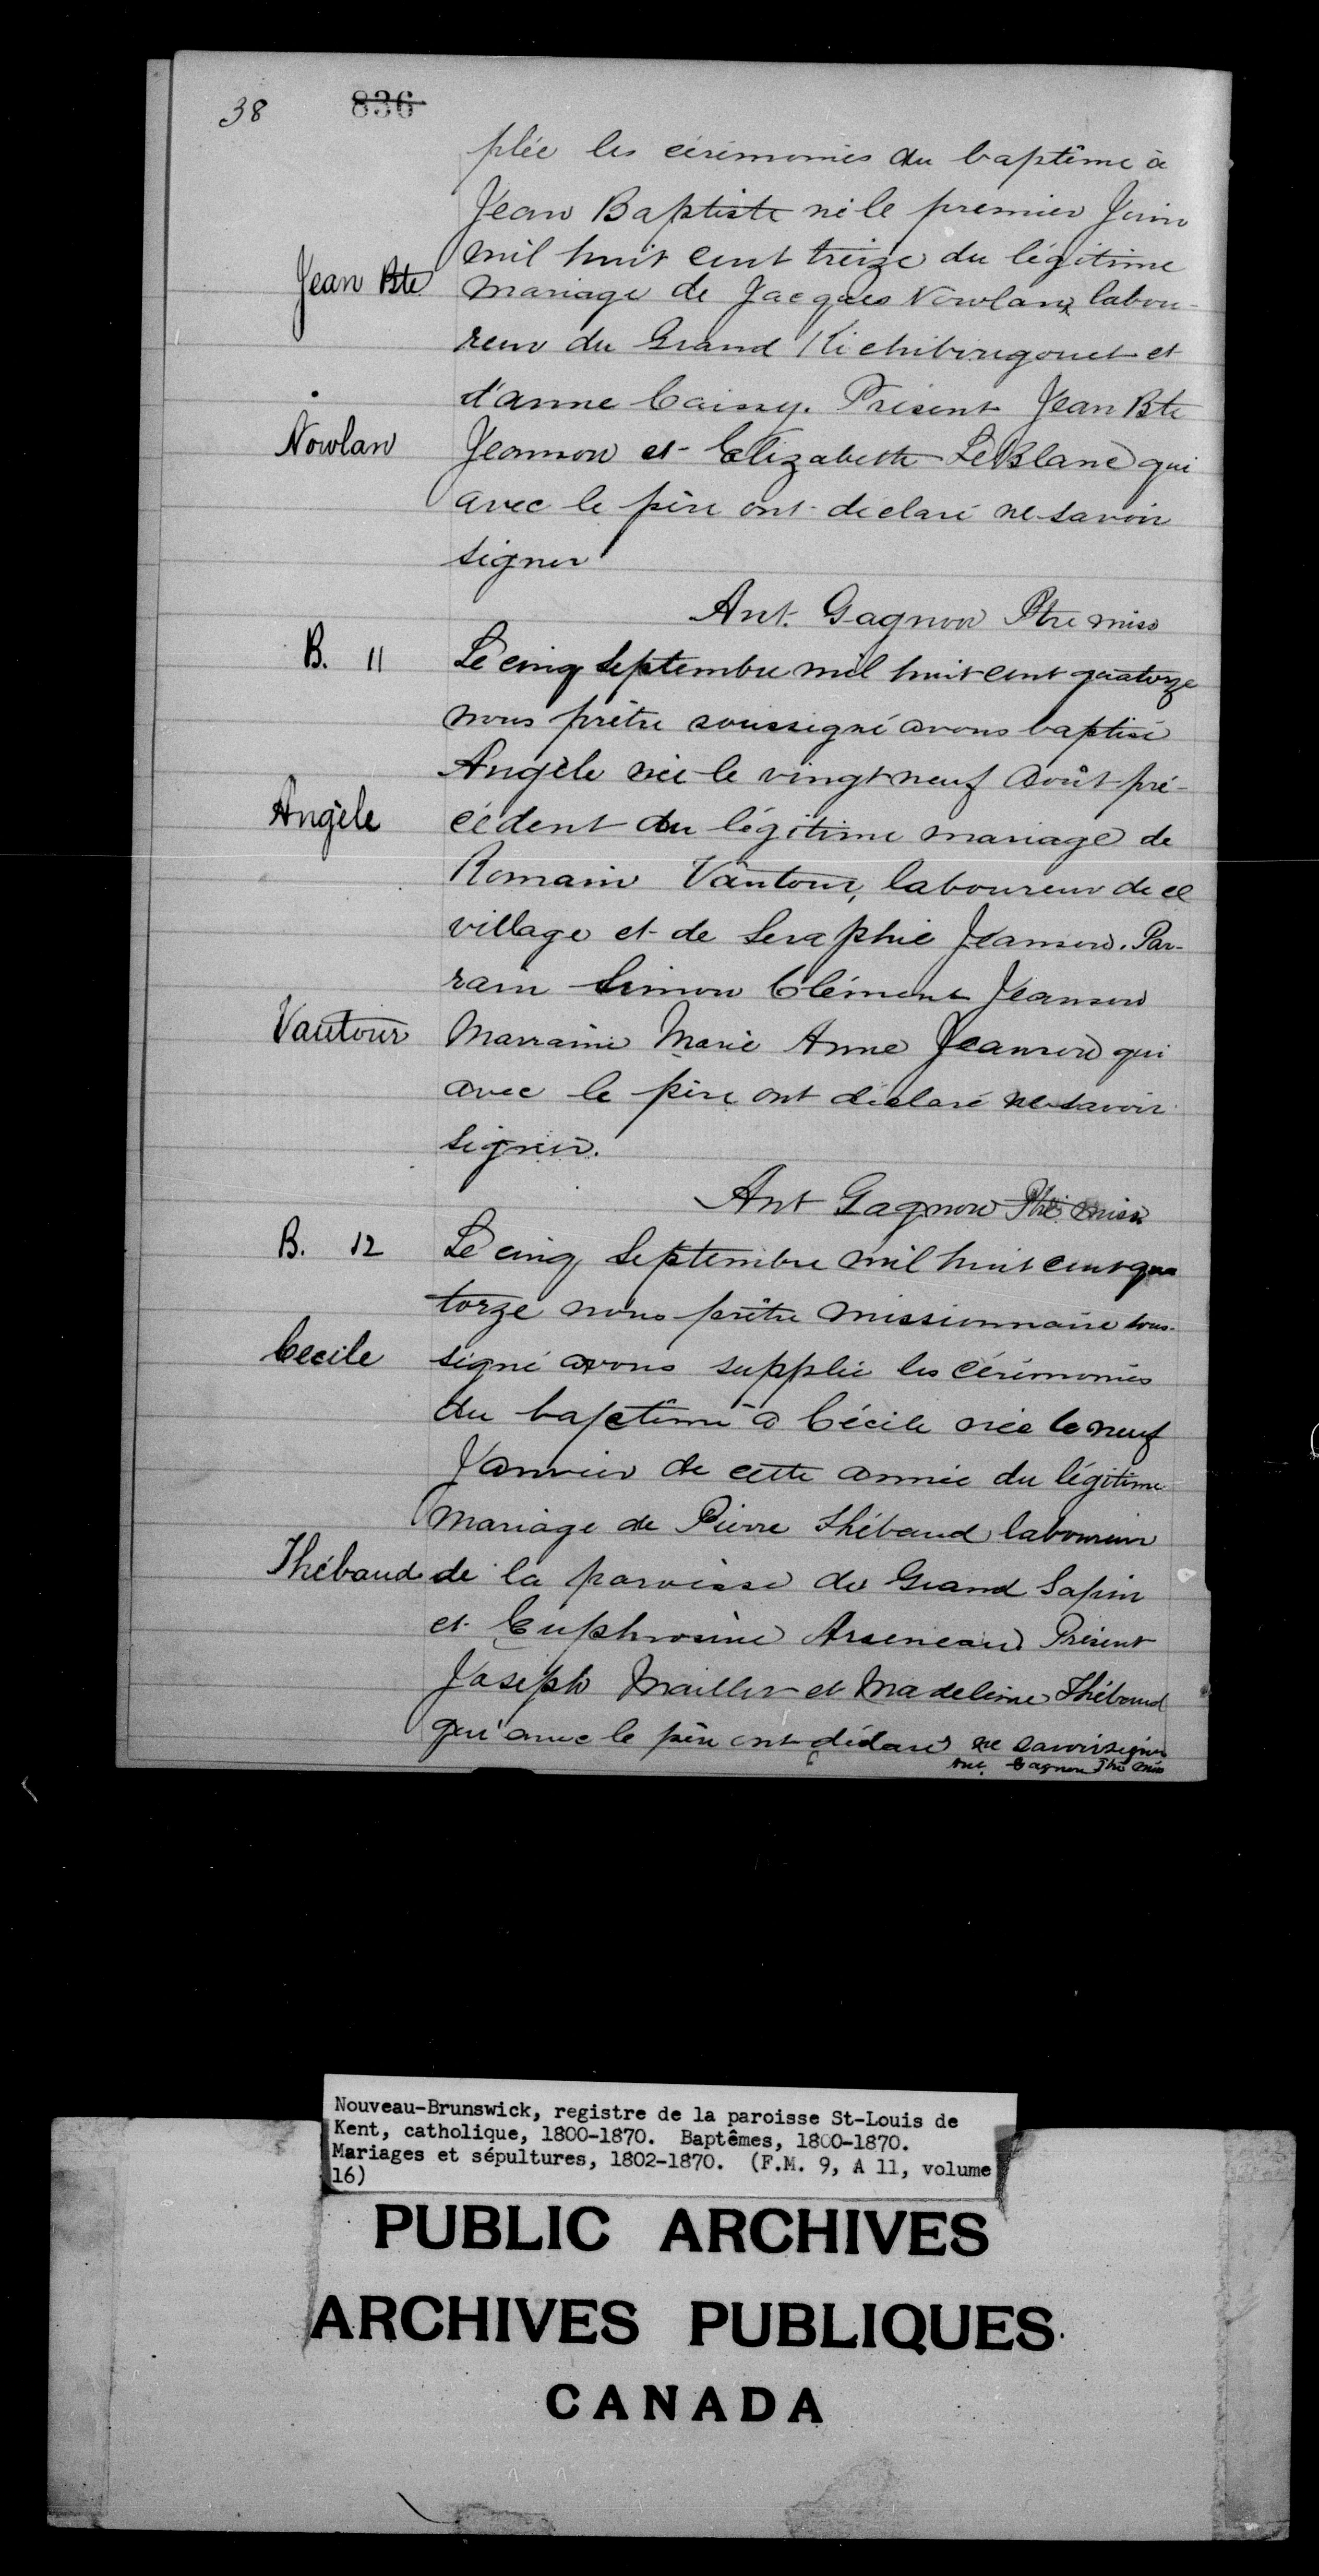 38 836
plée les cérémonies du baptême à
Jean Baptiste né le premier Juin
mil huit cent treize du légitime
Jean Bte mariage de Jacques Nowlan, labou-
reur du Grand Richibougouet et
d'anne Caissy. Présent Jean Bte
Nowlan Jeanson et Elizabeth LeBlanc qui
avec le père ont déclaré ne savoir
signer
Ant. Gagnon Ptre miss
B. 11 Le cinq Septembre mil huit cent quatorze
nous prêtre soussigné avons baptisé
Angèle née le vingt neuf Août pré-
Angèle cédent du légitime mariage de
Romain Vautour, laboureur de ce
village et de Seraphie Jeanson. Par-
rain Simon Clément Jeanson
Vautour Marraine Marie Anne Jeanson qui
avec le père ont déclaré ne savoir
signer.
Ant Gagnon Ptre miss
B. 12 Le cinq Septembre mil huit cent qua
torze nous prêtre missionnaire sous-
Cecile signé avons supplée les cérémonies
du baptême à Cécile née le neuf
Janvier de cette année du légitime
mariage de Pierre Thébaud laboureur
Thébaud de la paroisse du Grand Sapin
et Euphrosine Arseneau Présent
Joseph Maillet et Madeleine Thébaud
qui avec le père ont déclaré ne savoir signer
Ant. Gagnon Ptre miss
Nouveau-Brunswick, registre de la paroisse St-Louis de
Kent, catholique, 1800-1870. Baptêmes, 1800-1870.
Mariages et sépultures, 1802-1870. (F.M. 9, A 11, volume
16)
PUBLIC ARCHIVES
ARCHIVES PUBLIQUES
CANADA